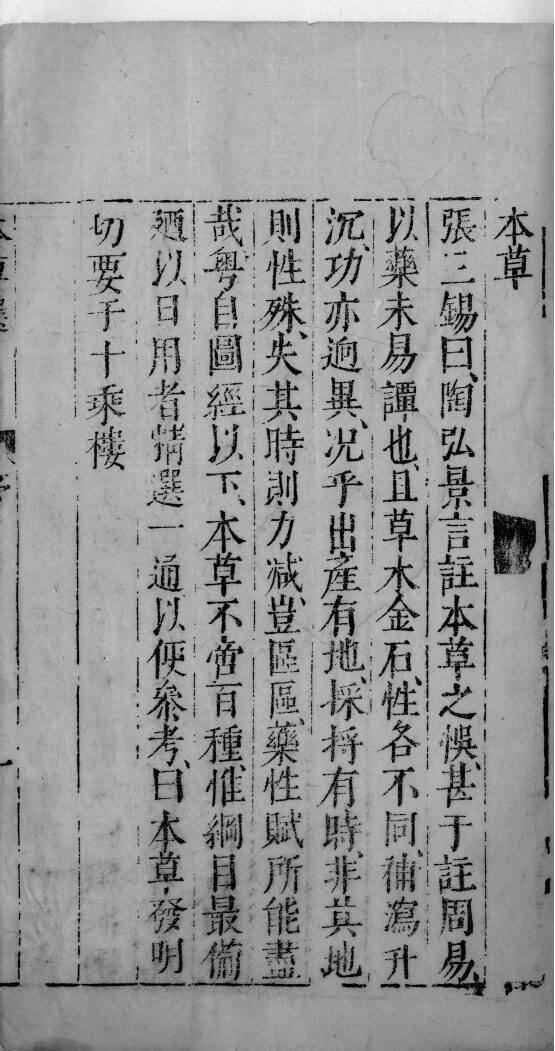 本草
張三錫曰、陶弘景言註本草之悞、甚于註周易、
以藥未易譚也、且草木金石、性各不同、補瀉升
沉、功亦迥異、况乎出產有地、採捋有時、非其地
則性殊、失其時則力減、豈區區、藥性賦所能盡
哉粤自圖經以下、本草不啻百種、惟綱目最備
廼以日用者精選一通以便叅考、曰本草發明
切要于十乘樓